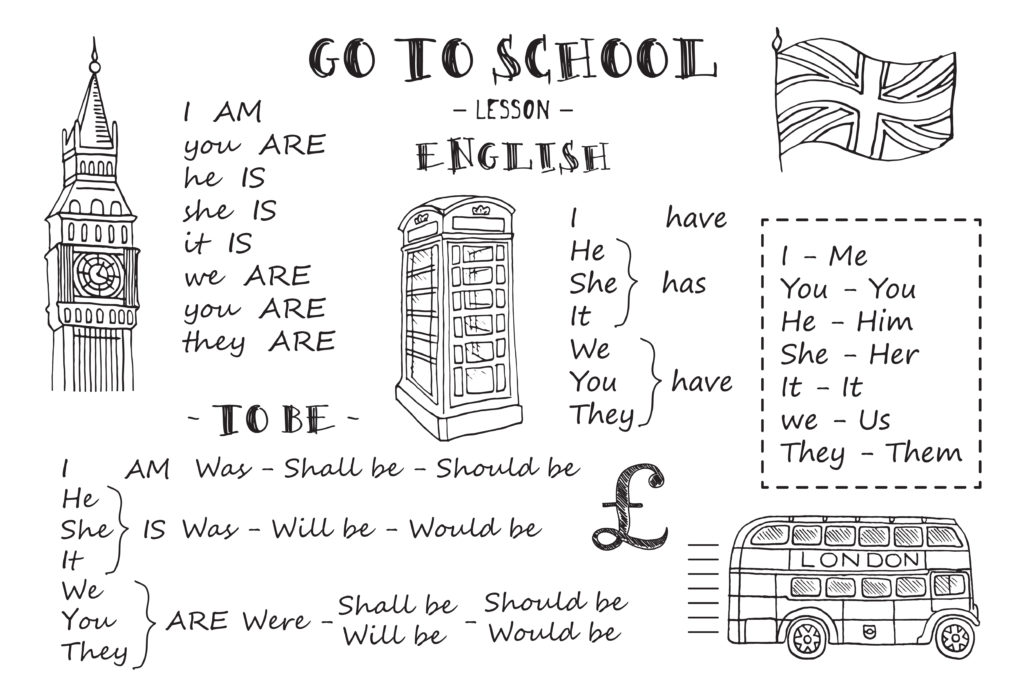 GO TO SCHOOL
- LESSON -
ENGLISH
I AM
you ARE
he IS
she IS
it IS
we ARE
you ARE
they ARE
I have
He
She has
It
We
You have
They
I - Me
You - You
He - Him
She - Her
It - It
we - Us
They - Them
- TO BE -
I AM Was - Shall be - Should be
He
She IS Was - Will be - Would be
It
We
You ARE Were - Shall be - Should be
Will be Would be
They
£
LONDON